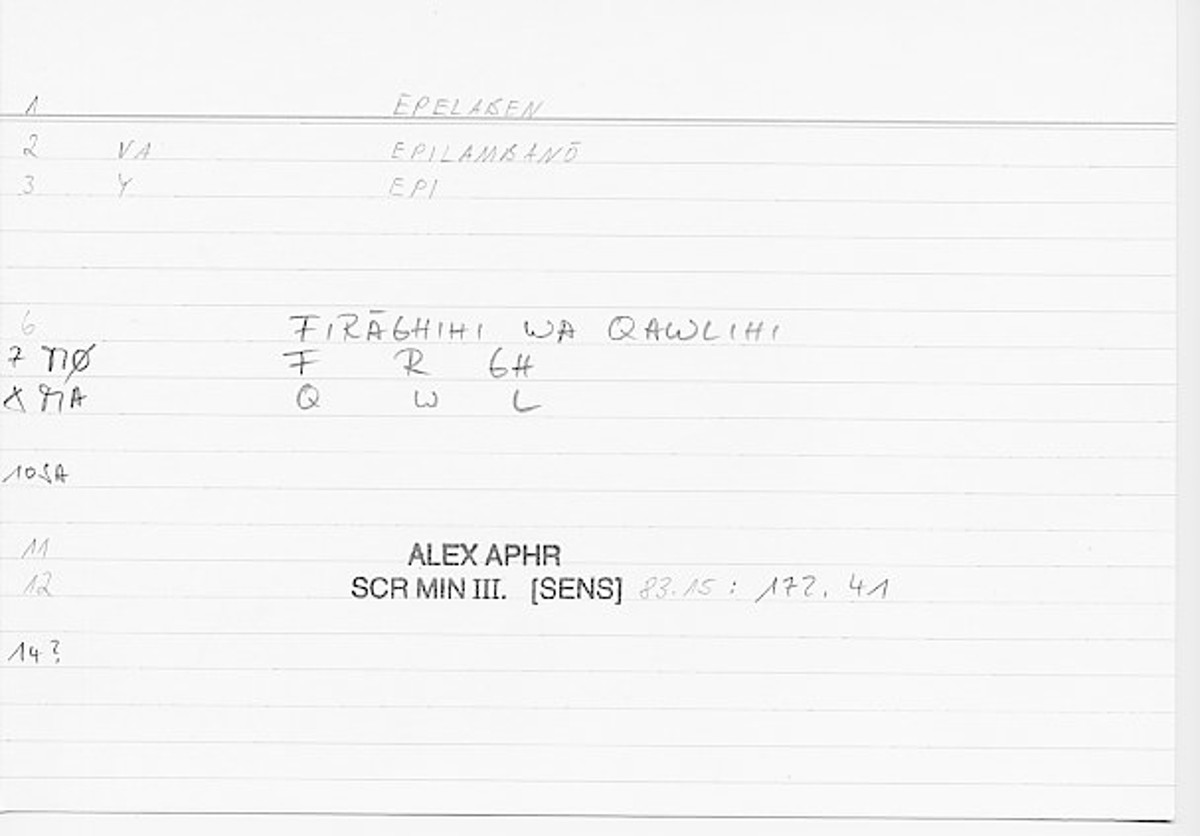 1 EPELABEN
2 VA EPILAMBANŌ
3 Y EPI
6 FIRĀGHIHI WA QAWLIHI
7 F R GH
Q W L
10
11 ALEX APHR
12 SCR MIN III. [SENS] 83.15 : 172. 41
14?